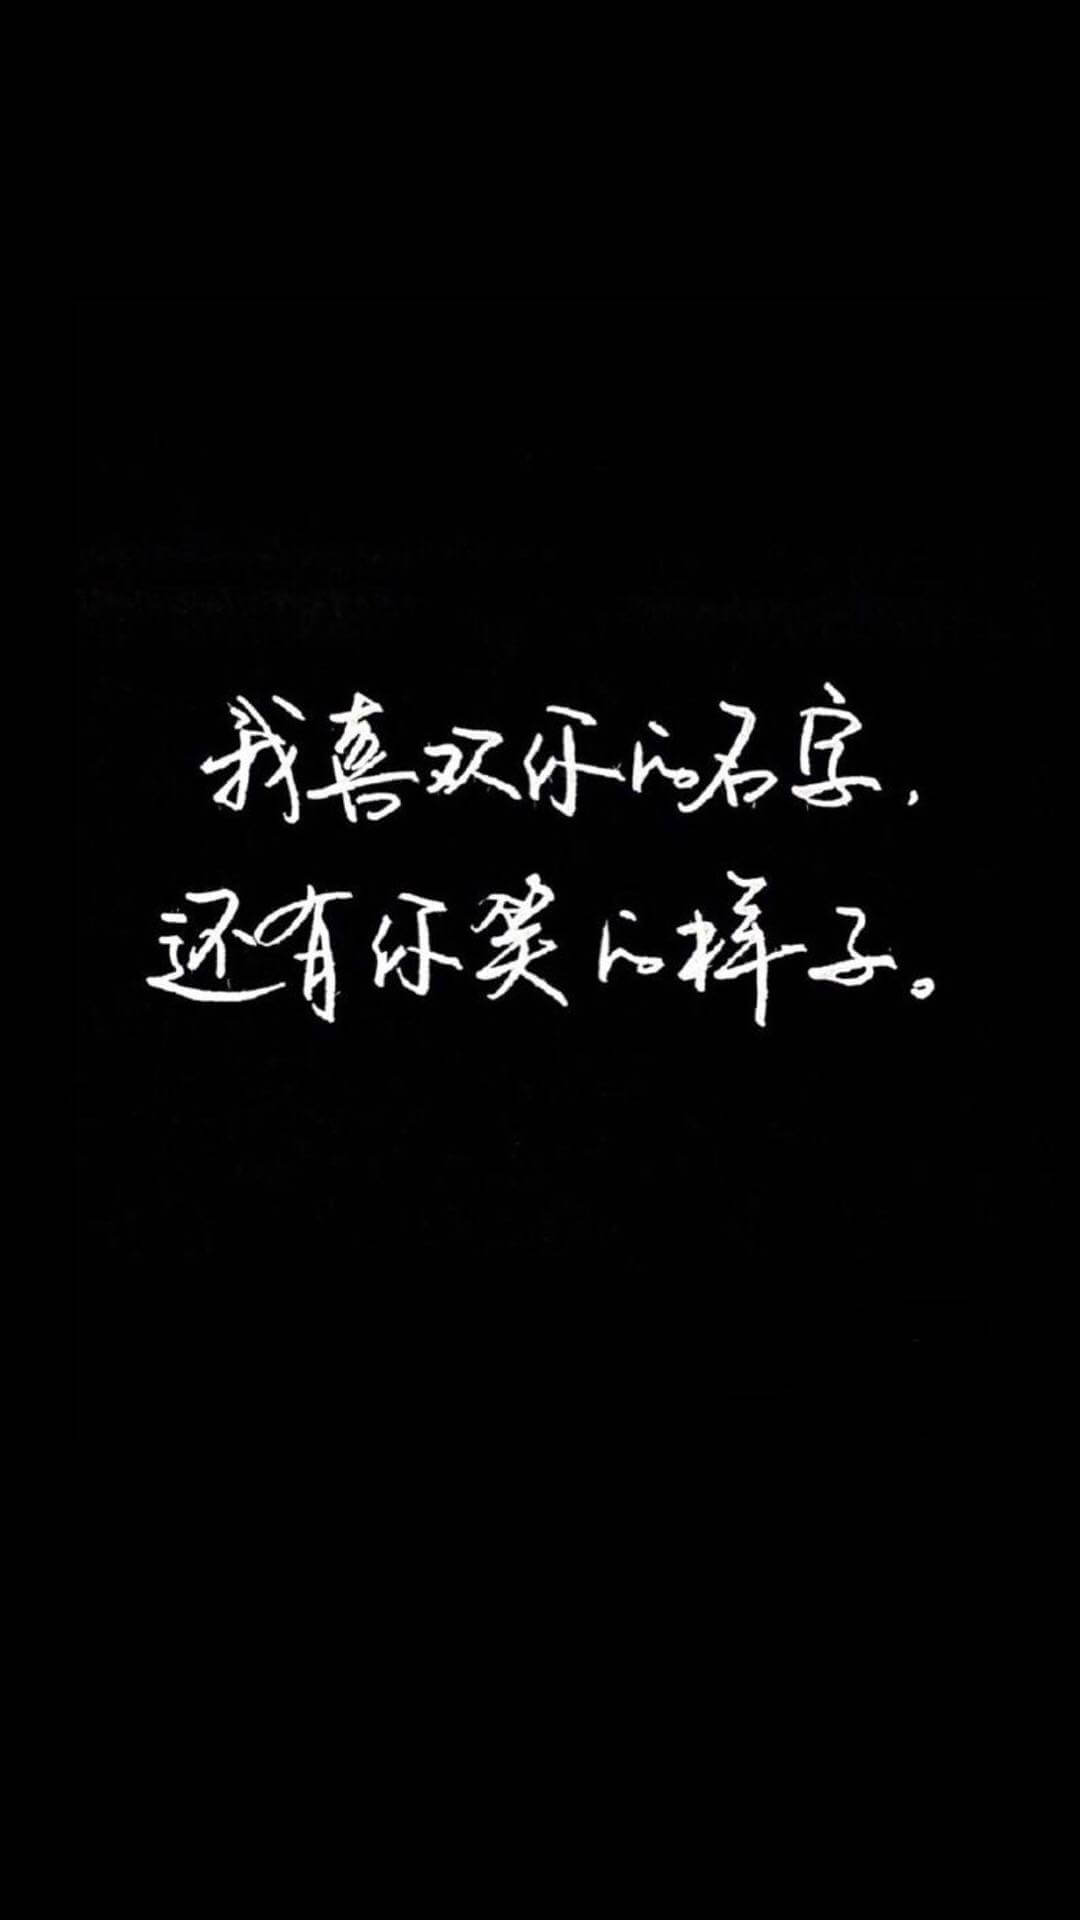 我喜欢你的名字，
还有你笑的样子。